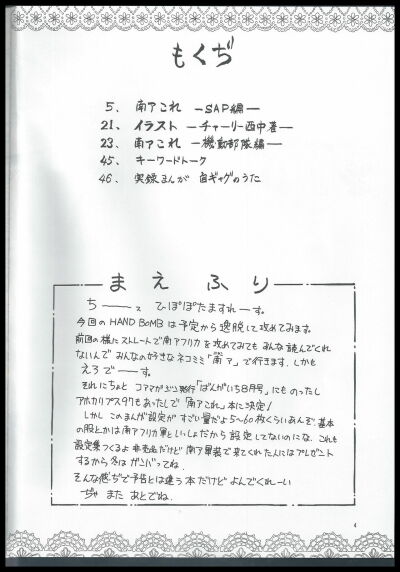 もくぢ
5. 南アこれ —SAP編—
21. イラスト —チャーリー西中著—
23. 南アこれ —機動部隊編—
45. キーワードトーク
46. 実録まんが 自ギャグのうた
まえふり
ち——ェ ひぽぽたますれーす。
今回のHAND BOMBは予定から逸脱して攻めてみます。
前回の様にストレートで南アフリカを攻めてもみんな読んでくれ
ないんで みんなの好きなネコミミ「南ア」で行きます。しかも
えろでーす。
それにちょと コアマガジン発行「ばんがいち8月号」にものったし
アホカリプス97もあったしで「南アこれ」本に決定!
しかし このまんが設定が すごい量だよ 5〜60枚くらいあんぞ 基本
の服とかは南アフリカ軍といっしょだから 設定してないのにな これも
設定集つくるよ 非売品だけど 南ア軍装で来てくれた人にはプレゼント
するから 冬は ガンバってね。
そんな感ぢで予告とは違う本だけど よんでくれーい
ぢゃ また あとでね。
4